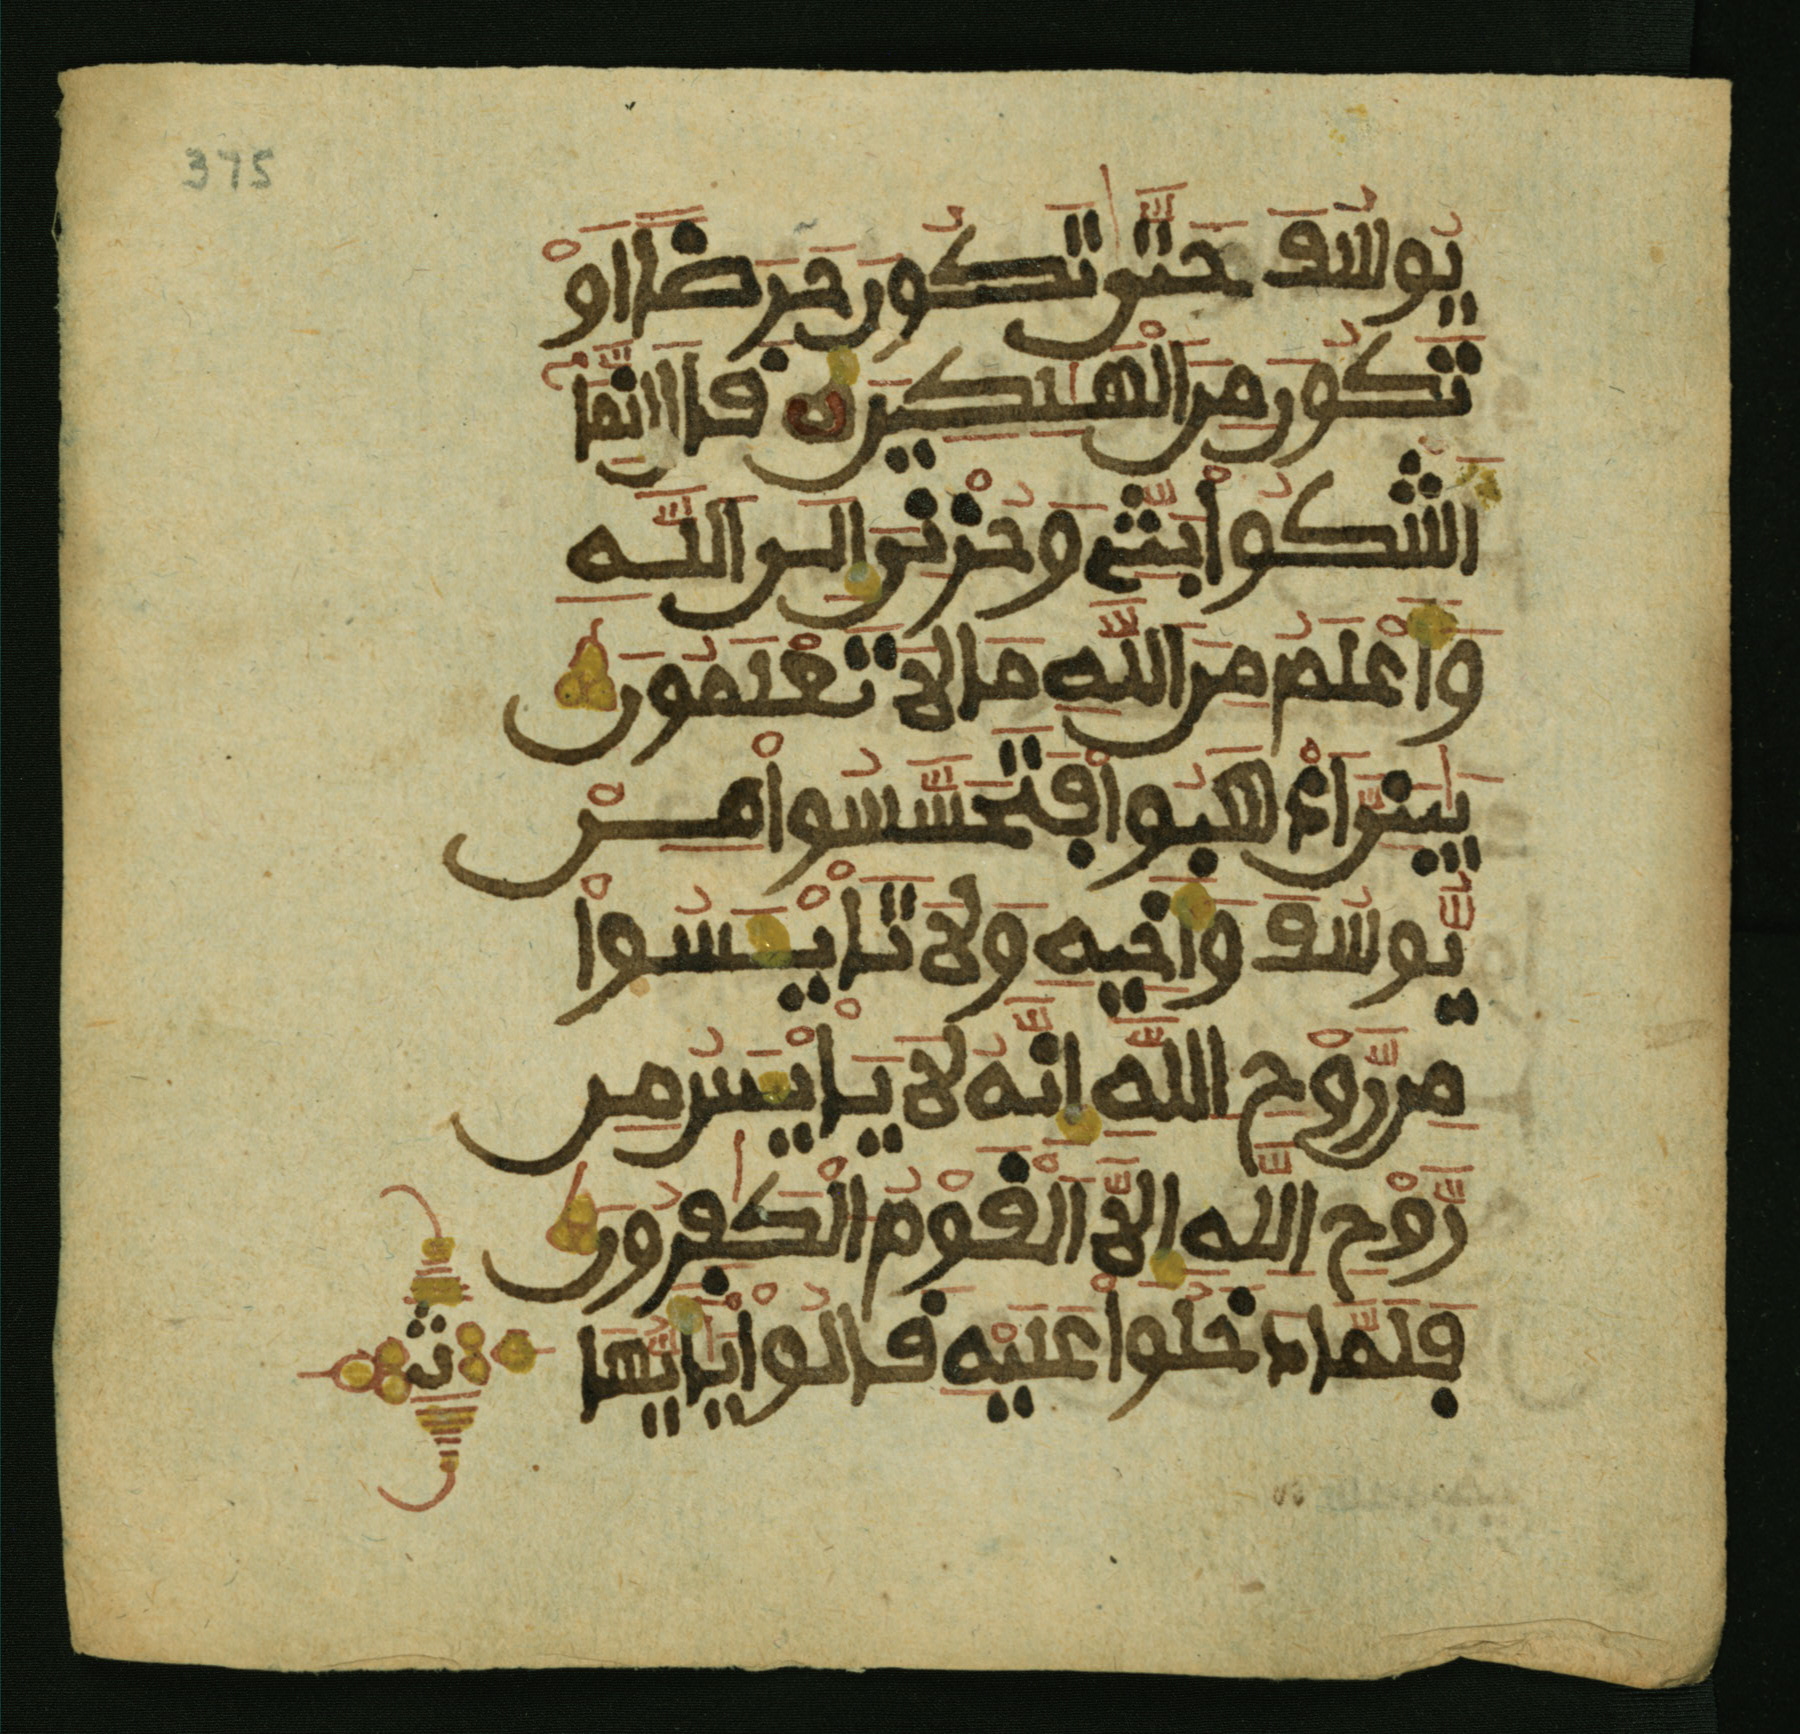 375
يُوسُفَ حَتَّىٰ تَكُونَ حَرَضًا اَوْ
تَكُونَ مِنَ الْهَٰلِكِينَ قَالَ اِنَّمَآ
أَشْكُواْ بَثِّي وَحُزْنِيَ إِلَى اللَّهِ
وَأَعْلَمُ مِنَ اللَّهِ مَا لَا تَعْلَمُونَ
يَٰبَنِيَّ اَذْهَبُواْ فَتَحَسَّسُواْ مِنْ
يُّوسُفَ وَأَخِيهِ وَلَا تَاْيْـَٔسُواْ
مِن رَّوْحِ اللَّهِ إِنَّهُ لَا يَاْيْـَٔسُ مِن
رَّوْحِ اللَّهِ إِلَّا الْقَوْمُ الْكَٰفِرُونَ
فَلَمَّا دَخَلُواْ عَلَيْهِ قَالُواْ يَٰأَيُّهَا
ثمن